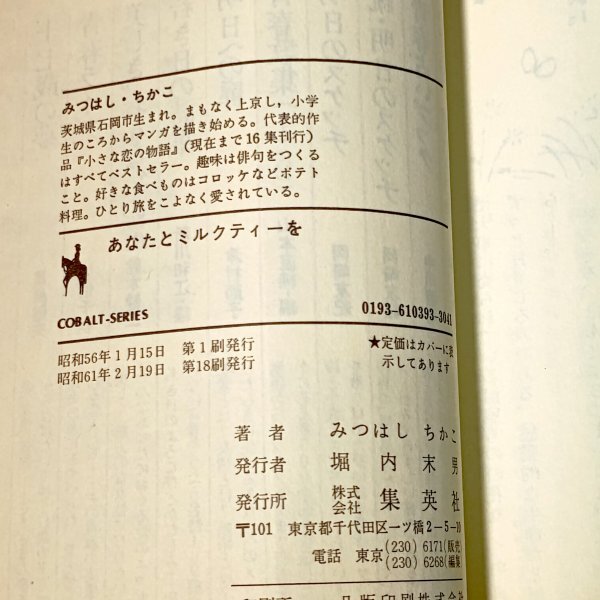 みつはし・ちかこ
茨城県石岡市生まれ。まもなく上京し，小学
生のころからマンガを描き始める。代表的作
品『小さな恋の物語』(現在まで16集刊行)
はすべてベストセラー。趣味は俳句をつくる
こと。好きな食べものはコロッケなどポテト
料理。ひとり旅をこよなく愛されている。
あなたとミルクティーを
COBALT-SERIES
0193-610393-3041
昭和56年1月15日 第1刷発行
昭和61年2月19日 第18刷発行
★定価はカバーに表
示してあります
著者 みつはしちかこ
発行者 堀内末男
発行所 株式会社 集英社
〒101 東京都千代田区一ツ橋2-5-10
電話 東京(230)6171(販売)
(230)6268(編集)